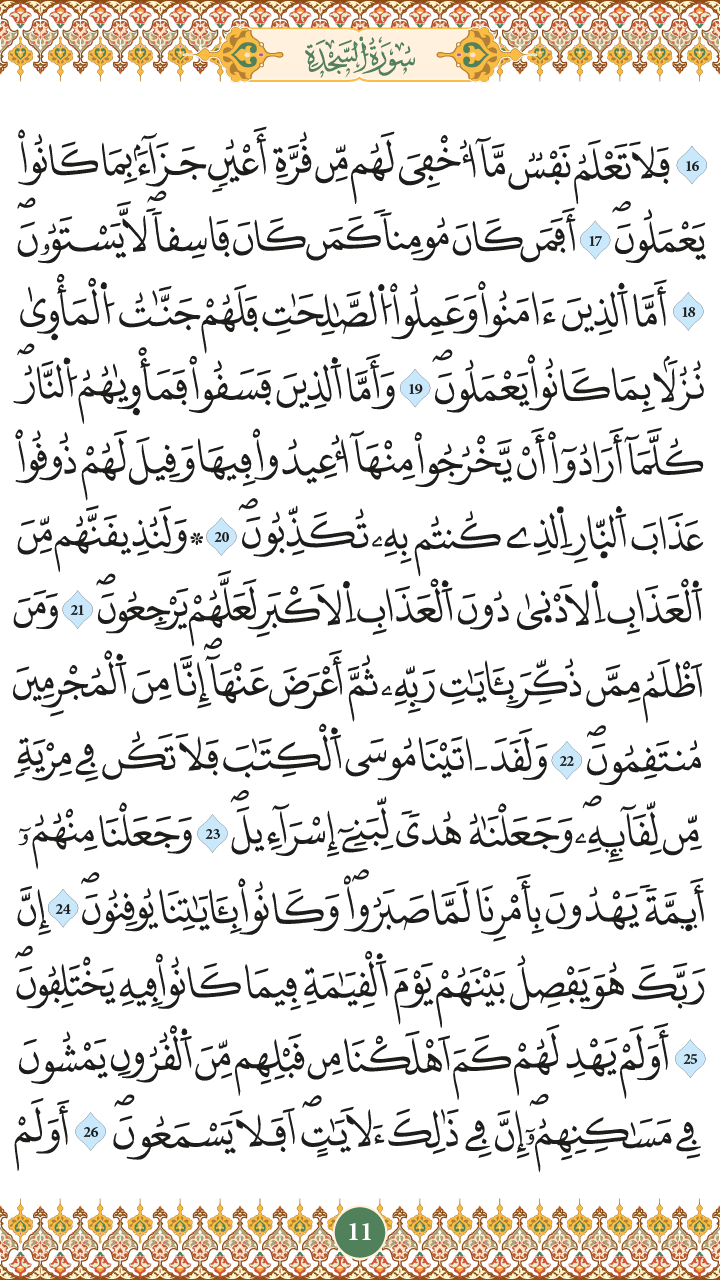 سُورَةُ السَّجْدَة
16 فَلَا تَعْلَمُ نَفْسٌ مَّآ أُخْفِيَ لَهُم مِّن قُرَّةِ أَعْيُنٍ جَزَآءَۢ بِمَا كَانُواْ
يَعْمَلُونَۖ 17 أَفَمَن كَانَ مُومِناٗ كَمَن كَانَ فَاسِقاٗۖ لَّا يَسْتَوُۥنَۖ
18 أَمَّا اَ۬لذِينَ ءَامَنُواْ وَعَمِلُواْ اُ۬لصَّٰلِحَٰتِ فَلَهُمْ جَنَّٰتُ اُ۬لْمَأْو۪ىٰ
نُزُلَاۢ بِمَا كَانُواْ يَعْمَلُونَۖ 19 وَأَمَّا اَ۬لذِينَ فَسَقُواْ فَمَأْو۪يٰهُمُ اُ۬لنَّارُۖ
كُلَّمَآ أَرَادُوٓاْ أَنْ يَّخْرُجُواْ مِنْهَآ أُعِيدُواْ فِيهَا وَقِيلَ لَهُمْ ذُوقُواْ
عَذَابَ اَ۬لنّ۪ارِ اِ۬لذِے كُنتُم بِهِۦ تُكَذِّبُونَۖ 20 ۞ وَلَنُذِيقَنَّهُم مِّنَ
اَ۬لْعَذَابِ اِ۬لَادْن۪ىٰ دُونَ اَ۬لْعَذَابِ اِ۬لَاكْبَرِ لَعَلَّهُمْ يَرْجِعُونَۖ 21 وَمَنَ
اَظْلَمُ مِمَّن ذُكِّرَ بِـَٔايَٰتِ رَبِّهِۦ ثُمَّ أَعْرَضَ عَنْهَآۖ إِنَّا مِنَ اَ۬لْمُجْرِمِينَ
مُنتَقِمُونَۖ 22 وَلَقَدَ اٰتَيْنَا مُوسَى اَ۬لْكِتَٰبَ فَلَا تَكُن فِے مِرْيَةٖ
مِّن لِّقَآئِهِۦۖ وَجَعَلْنَٰهُ هُدىٗ لِّبَنِےٓ إِسْرَآءِيلَۖ 23 وَجَعَلْنَا مِنْهُمُۥٓ
أَئِمَّةٗ يَهْدُونَ بِأَمْرِنَا لَمَّا صَبَرُواْۖ وَكَانُواْ بِـَٔايَٰتِنَا يُوقِنُونَۖ 24 إِنَّ
رَبَّكَ هُوَ يَفْصِلُ بَيْنَهُمْ يَوْمَ اَ۬لْقِيَٰمَةِ فِيمَا كَانُواْ فِيهِ يَخْتَلِفُونَۖ
25 أَوَلَمْ يَهْدِ لَهُمْ كَمَ اَهْلَكْنَا مِن قَبْلِهِم مِّنَ اَ۬لْقُرُونِ يَمْشُونَ
فِے مَسَٰكِنِهِمُۥٓۖ إِنَّ فِے ذَٰلِكَ ءَلَايَٰتٍۖ اَفَلَا يَسْمَعُونَۖ 26 أَوَلَمْ
11